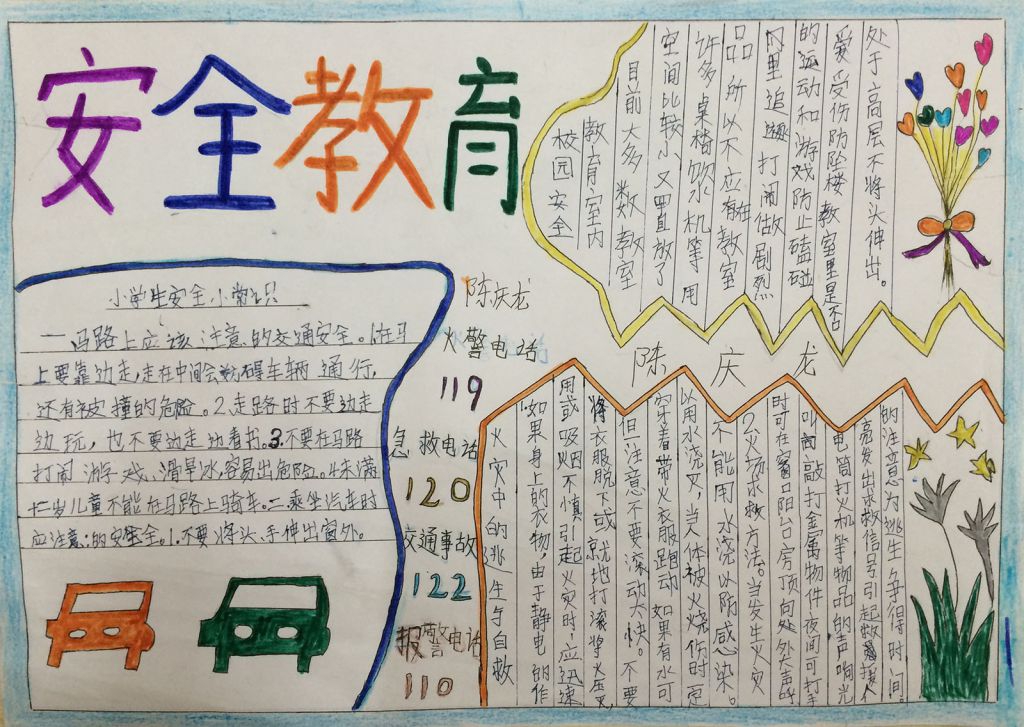 安全教育
小学生安全小常识
一 马路上应该注意的交通安全。1.在马
上要靠边走,走在中间会妨碍车辆通行,
还有被撞的危险。2.走路时不要边走
边玩,也不要边走边看书。3.不要在马路
打闹 游戏,滑旱冰容易出危险。4.未满
十二岁儿童不能在马路上骑车。二.乘坐汽车时
应注意:的安全。1.不要将头、手伸出窗外。
陈庆龙
火警电话
119
急救电话
120
交通事故
122
报警电话
110
校园安全
教育室内
目前大多数教室
空间比较小,又置放了
许多桌椅饮水机等用
品 所以不应在教室
内里追逐打闹做剧烈
的运动和游戏防止磕碰
爱受伤防坠楼教室里是否
处于高层不将头伸出。
陈庆龙
火灾中的逃生与自救
如果身上的衣物,由于静电的作
用或吸烟不慎引起火灾时,应迅速
将衣服脱下或就地打滚将火压灭
但注意不要滚动太快。不要
穿着带火衣服跑动 如果有水可
以用水浇灭,当人体被火烧伤时定
不能用水浇以防感染。
2火场求救方法。当发生火灾
时可在窗口阳台房顶向处大声呼
叫 敲打金属物件,夜间可打手
电筒打火机等物品的声响光
亮发出求救信号引起救援人
的注意为逃生争得时间。